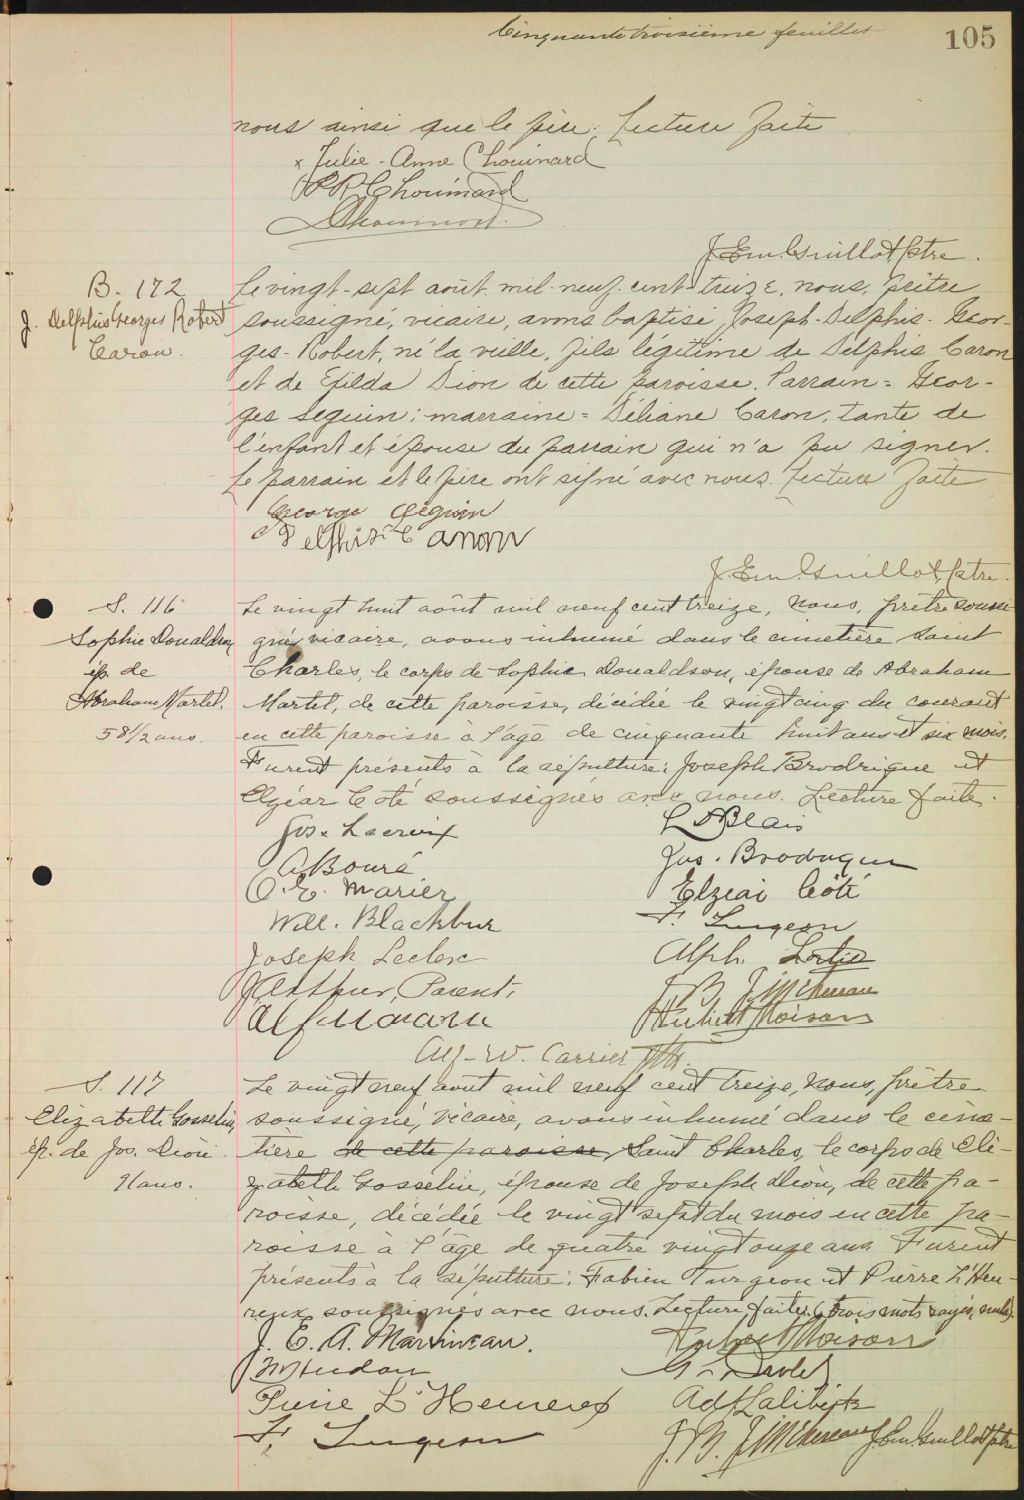 Cinquante troisième feuillet
105
nous ainsi que le père. Lecture faite
x Julie-Anne Chouinard
Chouinard
J. Em. Guillot ptre.
B. 172
J. Delphis Georges Robert
Caron.
Le vingt-sept août mil-neuf-cent-treize, nous, prêtre
soussigné, vicaire, avons baptisé Joseph-Delphis-Geor-
ges-Robert, né la veille, fils légitime de Delphis Caron
et de Exilda Dion de cette paroisse. Parrain = Geor-
ges Seguin; marraine = Déliane Caron, tante de
l'enfant et épouse du parrain qui n'a pu signer.
Le parrain et le père ont signé avec nous. Lecture faite
George Séguin
Delphis Caron
J. Em. Guillot, ptre.
S. 116
Sophie Donaldson
ép. de
Abraham Martel.
58 1/2 ans.
Le vingt huit août mil neuf cent treize, nous, prêtre soussi-
gné, vicaire, avons inhumé dans le cimetière Saint
Charles, le corps de Sophie Donaldson, épouse de Abraham
Martel, de cette paroisse, décédée le vingt cinq du courant
en cette paroisse à l'âge de cinquante huit ans et six mois.
Furent présents à la sépulture: Joseph Brodrigue et
Elzéar Coté soussignés avec nous. Lecture faite.
Jos. Lacroix
L D Blais
A Bourá
Jos. Brodrigue
O. E. Marier
Elzear Côté
Will. Blackburn
F. Turgeon
Joseph Leclerc
Alph. Lortie
J Arthur Parent,
J. B.
Hubert Moisan
Alf. W. Carrier ptr.
S. 117
Elizabeth Gosselin,
ép. de Jos. Dion.
91 ans.
Le vingt neuf août mil neuf cent treize, nous, prêtre
soussigné, vicaire, avons inhumé dans le cime-
tière de cette paroisse, Saint Charles, le corps de Eli-
zabeth Gosselin, épouse de Joseph Dion, de cette pa-
roisse, décédée le vingt sept du mois en cette pa-
roisse à l'âge de quatre vingt onze ans. Furent
présents à la sépulture: Fabien Turgeon et Pierre L'Heu-
reux soussignés avec nous. Lecture faite. (trois mots rayés, nuls)
J. E. A. Martineau.
Hubert Moisan
G. Drolet
Pierre L'Heureux
Ad. Laliberté
F. Turgeon
J. B.
J. Em. Guillot ptre